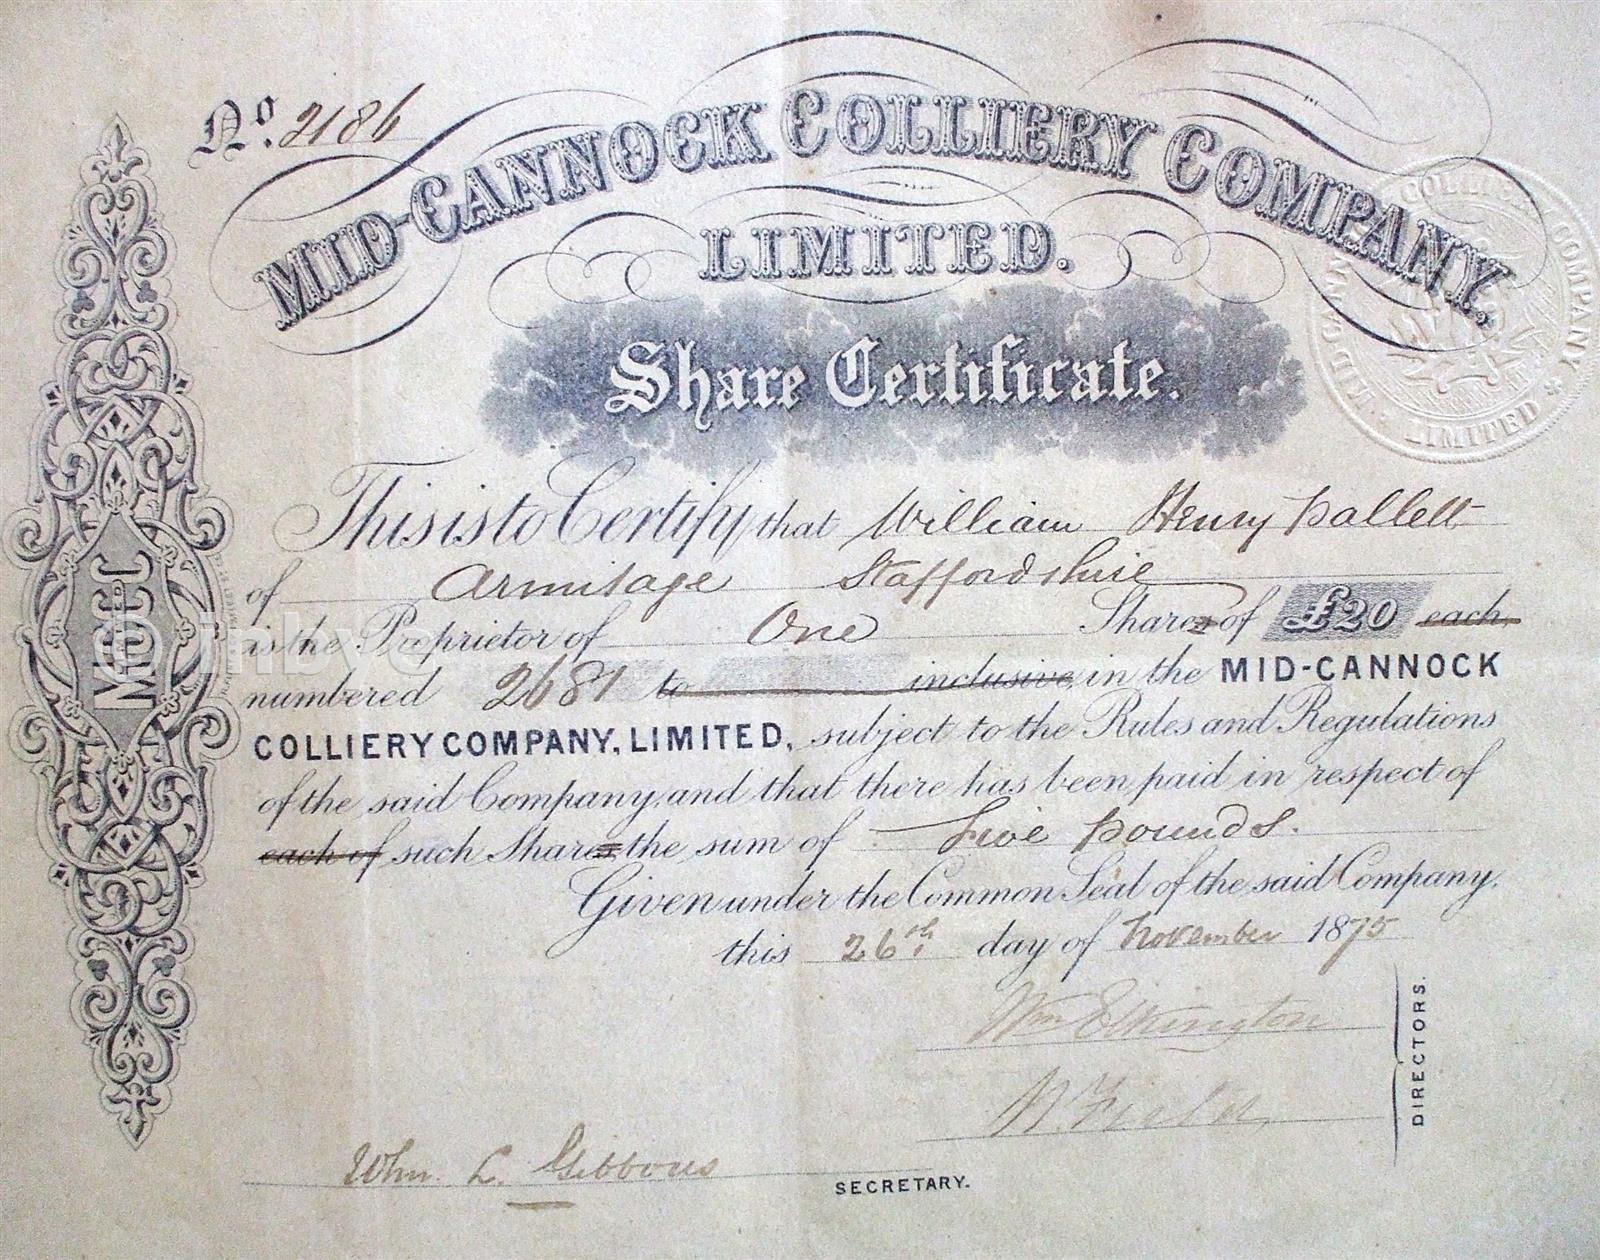 No. 2186
MID-CANNOCK COLLIERY COMPANY,
LIMITED.
Share Certificate.
This is to Certify that William Henry Pallett
of Armitage Staffordshire
is the Proprietor of One Shares of £20 each,
numbered 2681 to inclusive, in the MID-CANNOCK
COLLIERY COMPANY, LIMITED, subject to the Rules and Regulations
of the said Company, and that there has been paid in respect of
each of such Shares, the sum of Five Pounds.
Given under the Common Seal of the said Company,
this 26th day of November 1875
Wm Elkington
DIRECTORS.
Wm. L. Gibbons
SECRETARY.
MCCC
LIMITED
MID CANNOCK COLLIERY COMPANY
LIMITED
© inbye